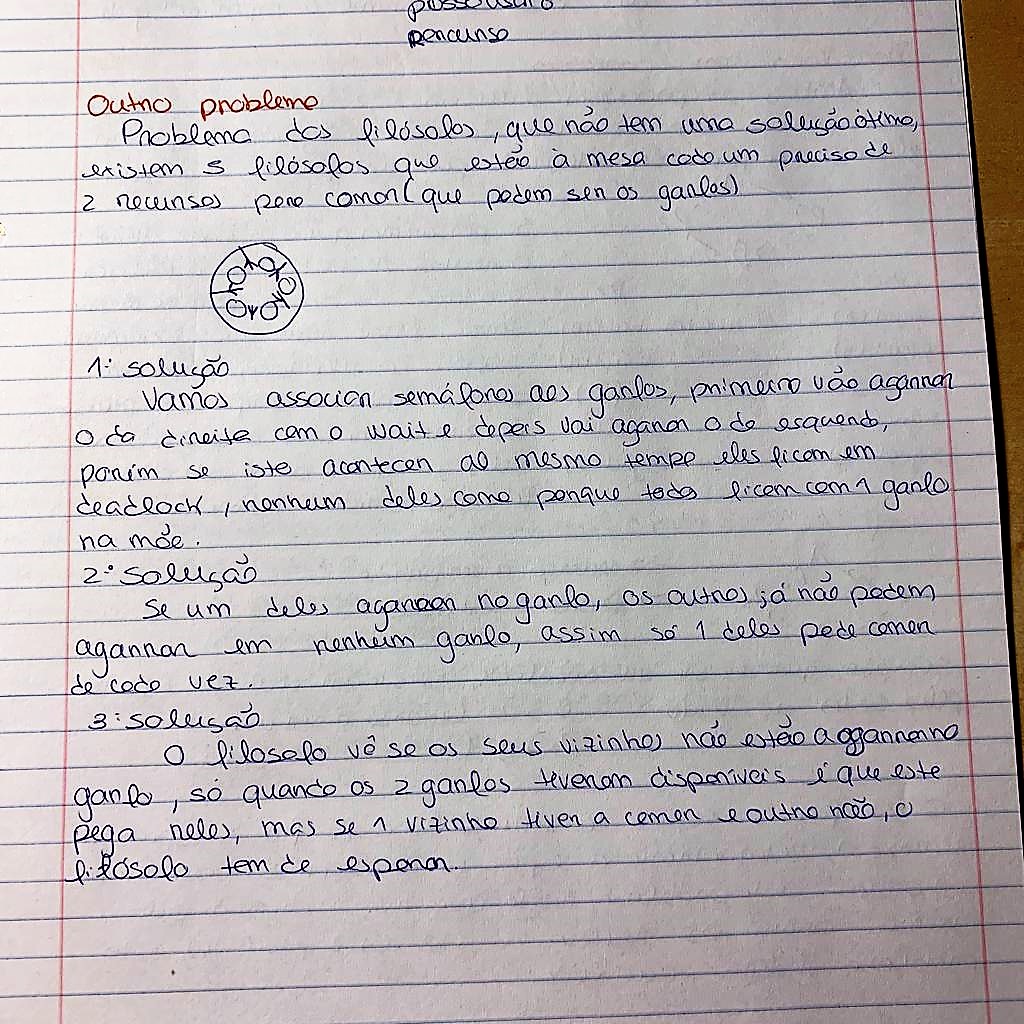 percurso
Outro problema
Problema dos filósofos, que não tem uma solução ótima,
existem 5 filósofos que estão à mesa cada um precisa de
2 recursos para comer (que podem ser os garfos)
1ª solução
Vamos associar semáforos aos garfos, primeiro vão agarrar
o da direita com o wait e depois vai agarar o da esquerda,
porém se isto acontecer ao mesmo tempo eles ficam em
deadlock, nenhum deles come porque todos ficam com 1 garfo
na mão.
2ª solução
Se um deles agarrar no garfo, os outros já não podem
agarrar em nenhum garfo, assim só 1 deles pode comer
de cada vez.
3ª solução
O filosofo vê se os seus vizinhos não estão a agarrar no
garfo, só quando os 2 garfos tiverem disponíveis é que este
pega neles, mas se 1 vizinho tiver a comer e outro não, o
filósofo tem de esperar.